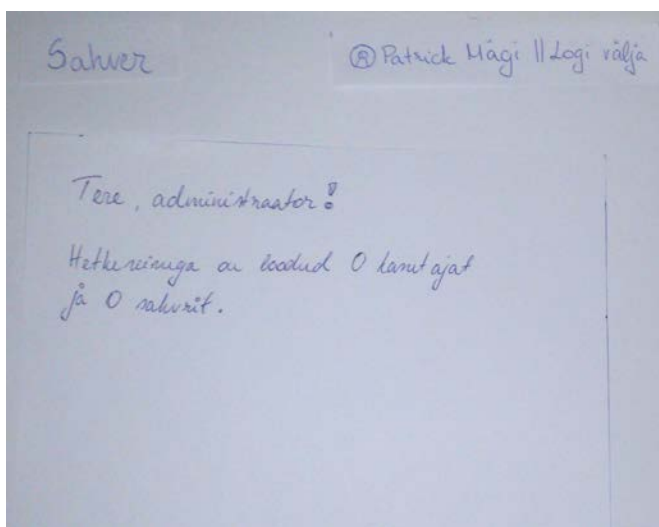 Sahver
® Patrick Mägi || Logi välja
Tere, administraator!
Hetkeseisuga on loodud 0 kasutajat
ja 0 sahvrit.